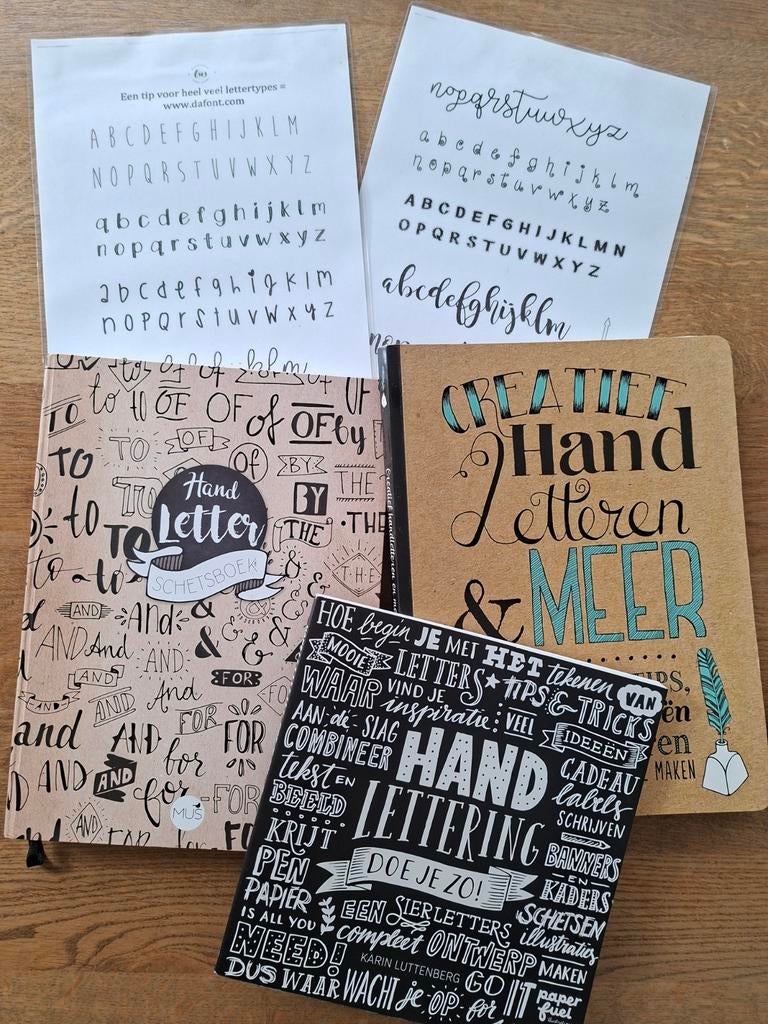 Een tip voor heel veel lettertypes =
www.dafont.com
A B C D E F G H I J K L M
N O P Q R S T U V W X Y Z
a b c d e f g h i j k l m
n o p q r s t u v w x y z
a b c d e f g h i j k l m
n o p q r s t u v w x y z
nopqrstuvwxyz
a b c d e f g h i j k l m
n o p q r s t u v w x y z
A B C D E F G H I J K L M N
O P Q R S T U V W X Y Z
abcdefghijklm
Hand
Letter
SCHETSBOEK
TO to OF OF of OF by
TO TO OF of BY THE
to TO BY THE THE
to to THE
AND And & &
AND And AND FOR
AND And FOR
AND AND for FOR
and AND for FOR
AND FOR
MUS
CREATIEF
Hand
Letteren
& MEER
TIPS,
MAKEN
Creatief handletteren en
HOE begin JE MET HET tekenen VAN
MOOIE LETTERS TIPS & TRICKS
WAAR VIND JE inspiratie: VEEL IDEEËN
AAN de SLAG
COMBINEER
tekst EN
BEELD
KRIJT
PEN
PAPIER
IS ALL YOU
NEED!
HAND
LETTERING
DOE JE ZO!
CADEAU
labels
SCHRIJVEN
BANNERS
EN
KADERS
SCHETSEN
illustraties
MAKEN
EEN SIERLETTERS
compleet ONTWERP
KARIN LUTTENBERG
DUS WAAR WACHT je OP GO for IT
paper
fuel